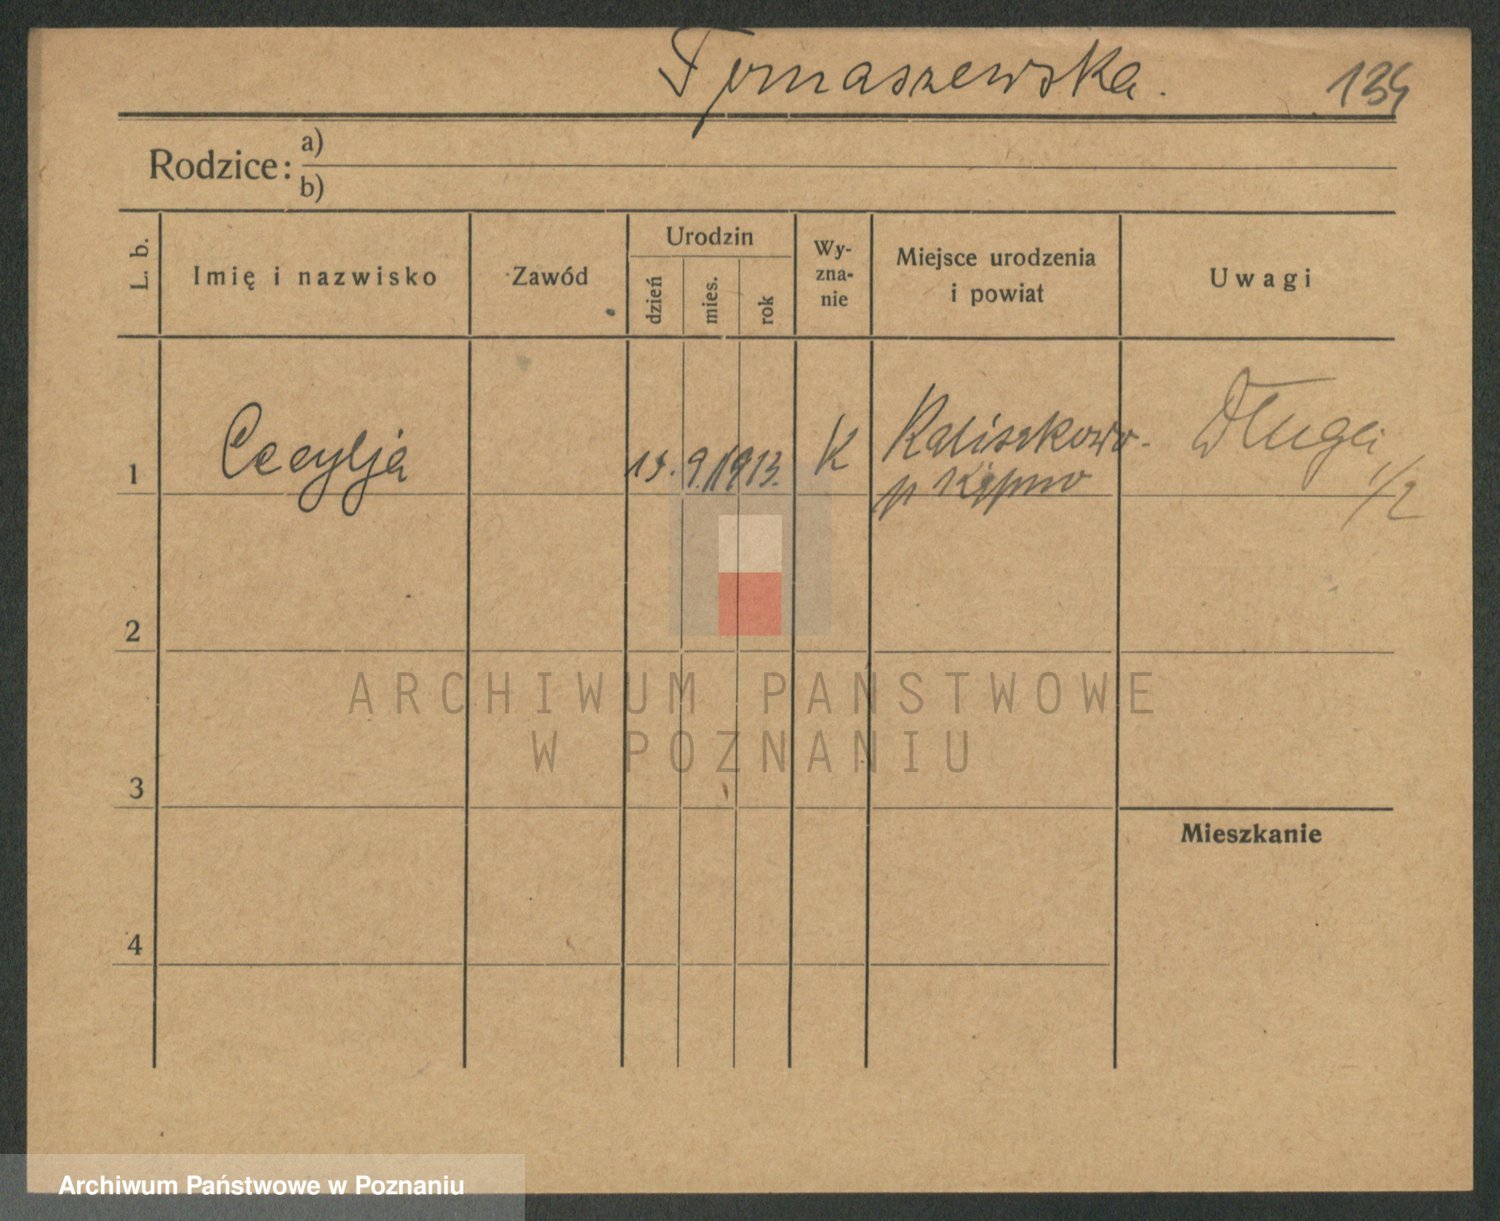 Tomaszewska.
Rodzice: a)
b)
L. b.
Imię i nazwisko
Zawód
Urodzin
dzień
mies.
rok
Wy-
zna-
nie
Miejsce urodzenia
i powiat
Uwagi
1
Cecylja
9. 1913.
K
Kaliszkowo-
p Kępno
Długa
1/2
2
ARCHIWUM PAŃSTWOWE
W POZNANIU
3
Mieszkanie
4
Archiwum Państwowe w Poznaniu